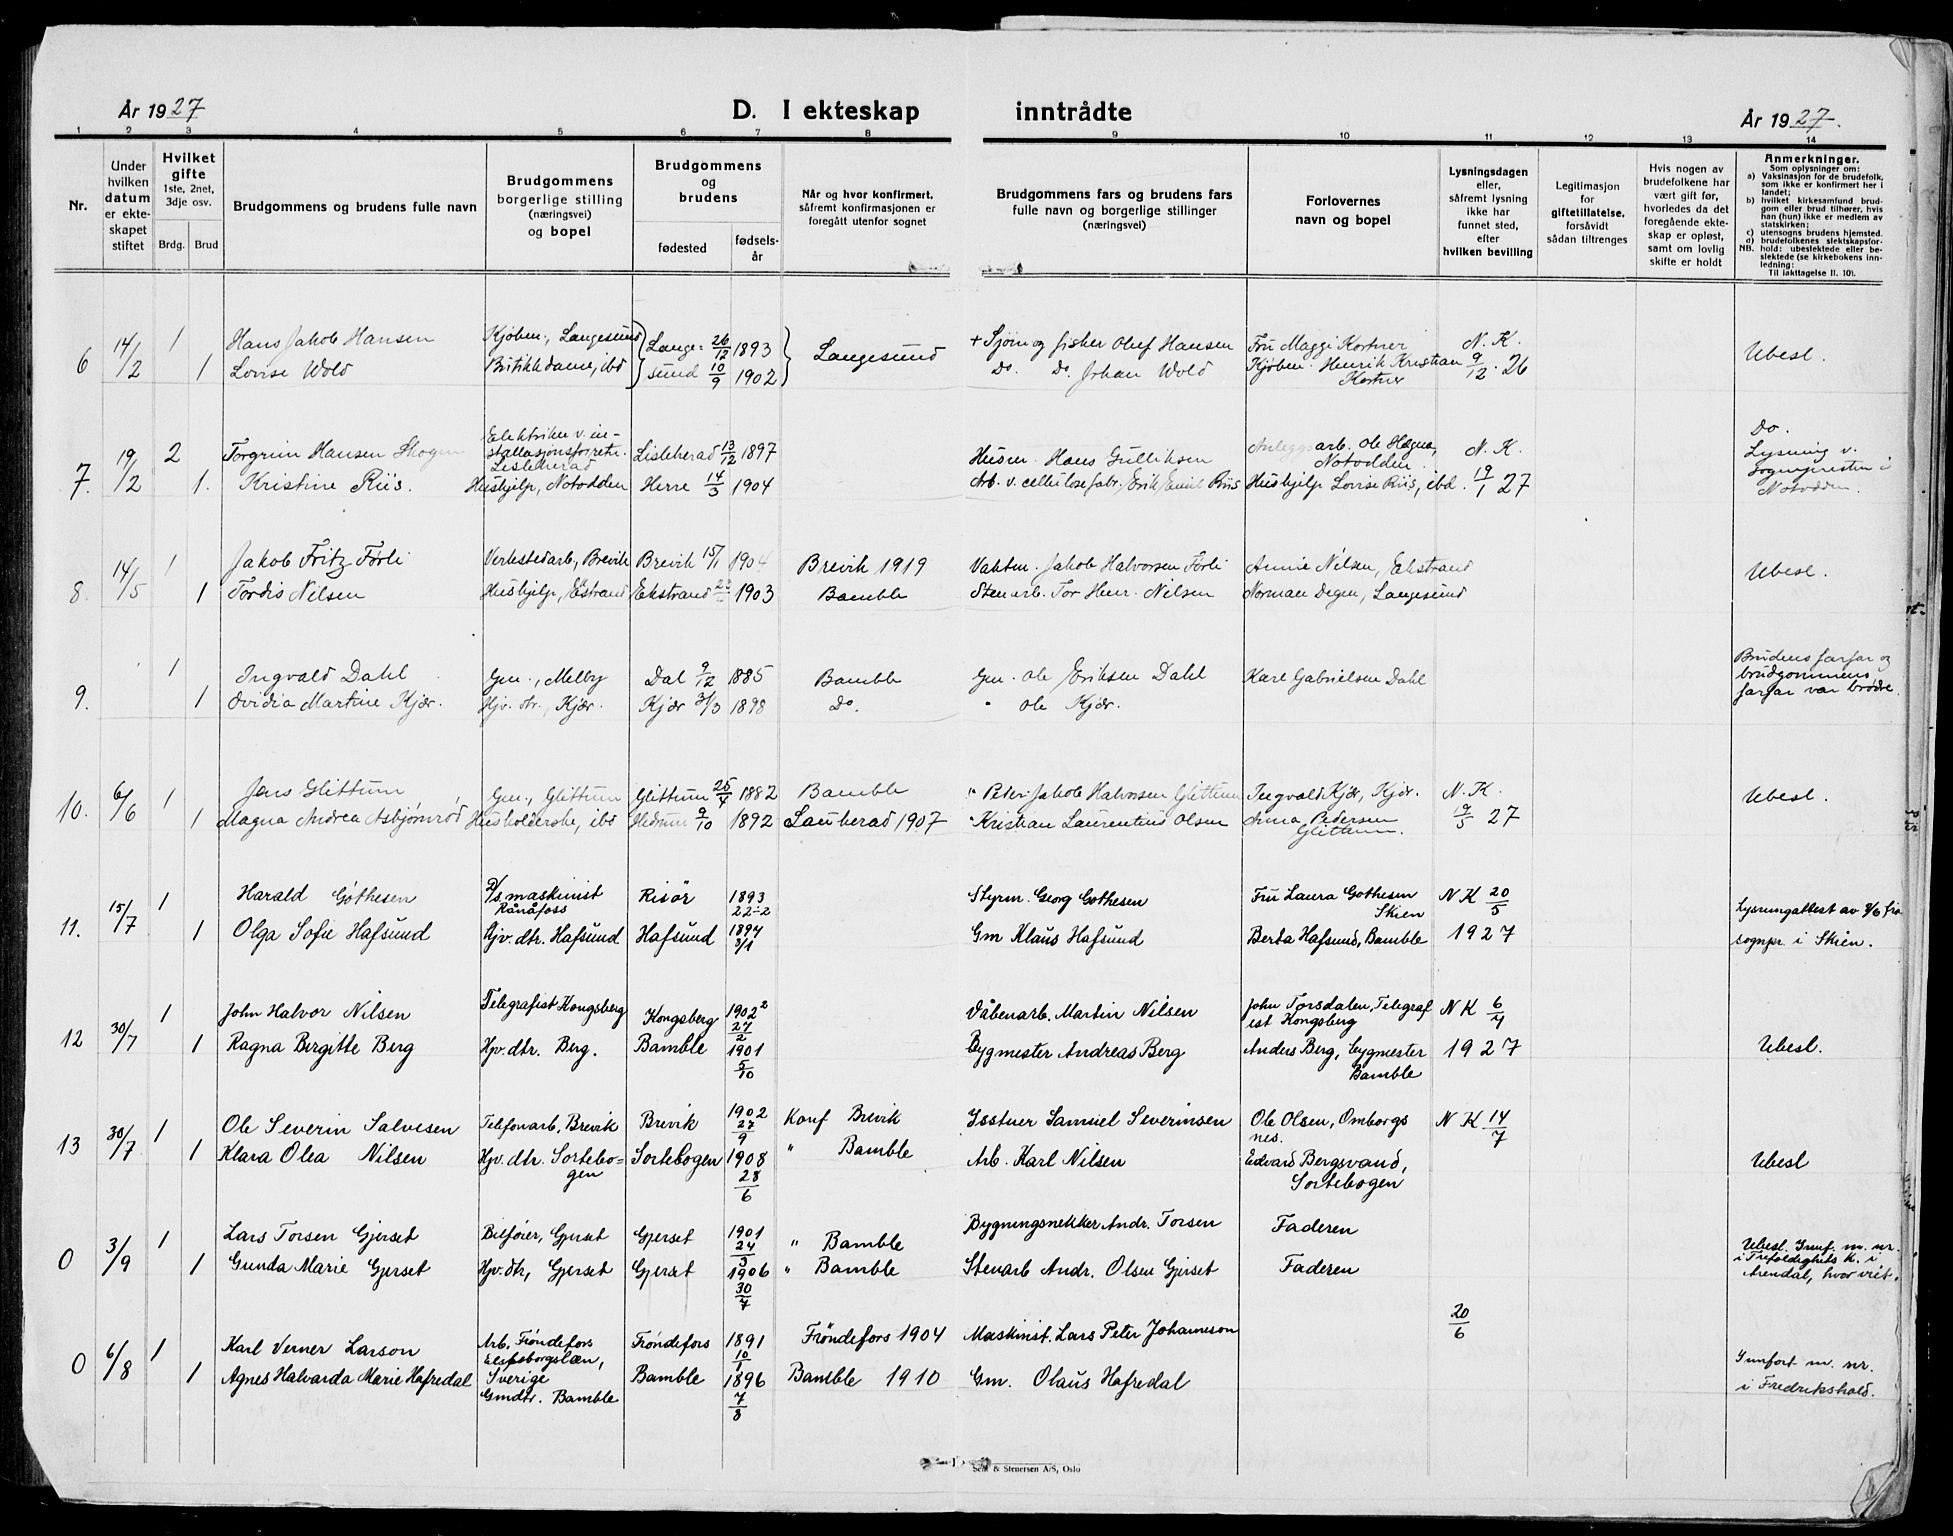 År 1927
D. I ekteskap inntrådte
År 1927.
1 2 3 4 5 6 7 8 9 10 11 12 13 14
Nr.
Under hvilken datum er ekteskapet stiftet
Hvilket gifte
1ste, 2net, 3dje osv.
Brdg. Brud
Brudgommens og brudens fulle navn
Brudgommens borgerlige stilling (næringsvei) og bopel
Brudgommens og brudens
fødested
fødselsår
Når og hvor konfirmert, såfremt konfirmasjonen er foregått utenfor sognet
Brudgommens fars og brudens fars fulle navn og borgerlige stillinger (næringsvei)
Forlovernes navn og bopel
Lysningsdagen eller, såfremt lysning ikke har funnet sted, efter hvilken bevilling
Legitimasjon for giftetillatelse, forsåvidt sådan tiltrenges
Hvis nogen av brudefolkene har vært gift før, hvorledes da det foregående ekteskap er opløst, samt om lovlig skifte er holdt
Anmerkninger.
Som oplysninger om:
a) Vaksinasjon for de brudefolk, som ikke er konfirmert her i landet;
b) hvilket kirkesamfund brudgom eller brud tilhører, hvis han (hun) ikke er medlem av statskirken;
c) utensogns brudens hjemsted.
d) brudefolkenes slektskapsforhold: ubeslektede eller beslektede (se kirkebokens innledning:
NB.
Til iakttagelse II. 10).
6 14/2 1 Hans Jakob Hansen Kjøbm., Langesund Lange= 26/12 1893 Langesund + Sjøm og fisker Oluf Hansen Fru Maggi Kortner N. K. Ubesl.
1 Lovise Wold Butikkdame, ibd sund 10/9 1902 Do. Do. Johan Wold Kjøbm. Henrik Kristian Kortner 9/12 . 26
7. 19/2 2 Torgrim Hansen Skogen Elektriker v. installasjonsforretn. Lisleherad Lisleherad 13/12 1897 Husm. Hans Gulliksen Anleggsarb. Ole Hægna, Notodden N. K. Do.
1. Kristine Riis. Hushjelp, Notodden Herre 14/3 1904 Arb. v. cellulosefabr. Erik Emil Riis Hushjelp Lovise Riis, ibd. 19/1 27 Lysning v. Sognepresten i Notodden.
8. 14/5 1 Jakob Fritz Førli Verkstedarb., Brevik Brevik 15/1 1904 Brevik 1919 Vaktm. Jakob Halvorsen Førli Annie Nilsen, Ekstrand Ubesl.
1 Tordis Nilsen Hushjelp, Ekstrand Ekstrand 1903 Bamble Stenarb. Tor Henr. Nilsen Norman Degen, Langesund
9. 1 Ingvald Dahl Gm., Melby Dal 9/12 1885 Bamble Gm. Ole Eriksen Dahl Karl Gabrielsen Dahl Brudens farfar og brudgommens farfar var brødre.
1 Ovidia Martine Kjær. Hjv. dtr., Kjær. Kjær 31/3 1898 Do. " Ole Kjær.
10. 6/6 1 Jens Glittum Gm., Glittum Glittum 25/4 1882 Bamble " Peter Jakob Halvorsen Glittum Ingvald Kjær, Kjær. N. K. Ubesl.
1 Magna Andrea Asbjørnrød Husholderske, ibd Hedrum 9/10 1892 Sauherad 1907 " Kristian Laurentius Olsen Anna Pedersen Glittum. 9/5 27
11. 15/7 1 Harald Gothesen D/s maskinist Rånåfoss Risør 1893 22-2 Styrm. Georg Gothesen Fru Laura Gothesen Skien N K 20/5 Lysningattest av 4/6 fra
1 Olga Sofie Hafsund Hjv. dtr. Hafsund Hafsund 1894 3/1 Gm Klaus Hafsund Berta Hafsund, Bamble 1927 sognpr. i Skien.
12 30/7 1 John Halvor Nilsen Telegrafist Kongsberg Kongsberg 1902 27/2 Våbenarb. Martin Nilsen John Torsdalen, Telegrafist Kongsberg N K 6/4
1 Ragna Birgitte Berg Hjv. dtr. Berg. Bamble 1901 5/10 Bygmester Andreas Berg Anders Berg, bygmester Bamble 1927 Ubesl.
13 30/7 1 Ole Severin Salvesen Telefonarb., Brevik Brevik 1902 27/9 Konf Brevik Isstuer Samuel Severinsen Ole Olsen, Omborgsnes. N K 14/7
1 Klara Olea Nilsen Hjv. dtr. Sortebogen Sortebogen 1908 28/6 " Bamble Arb. Karl Nilsen Edvard Bergsvand, Sortebogen Ubesl
0 3/9 1 Lars Torsen Gjerset Bilfører, Gjerset Gjerset 1901 24/3 " Bamble Bygningsnekker Andr. Torsen Faderen Ubesl. Innf. m. nr.
1 Gunda Marie Gjerset Hjv. dtr., Gjerset Gjerset 1906 30/7 " Bamble Stenarb Andr. Olsen Gjerset Faderen i Trefoldighets K. i Arendal, hvor viet.
0 6/8 1 Karl Verner Larson Arb. Fröndefors Elfsborgslæn, Sverige Fröndefors 1891 10/1 Fröndefors 1904 Maskinist. Lars Peter Johanneson 20/6
1 Agnes Halvarda Marie Hafredal Gmdtr. Bamble Bamble 1896 7/8 Bamble 1910 Gm. Olaus Hafredal Innført m. nr. i Fredrikshald.
Sem & Stenersen A/S, Oslo